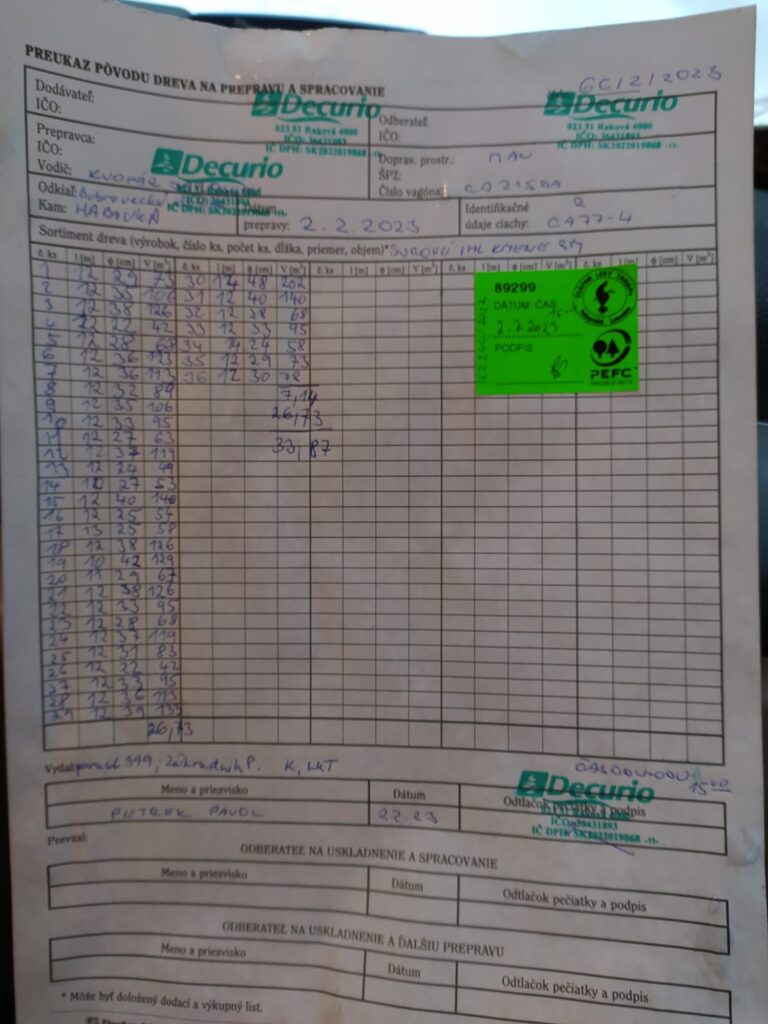 PREUKAZ PÔVODU DREVA NA PREPRAVU A SPRACOVANIE
GC/2/2023
Dodávateľ:
IČO:
Decurio
023 51 Raková 4000
IČO: 36431893
IČ DPH: SK2022019868 -11-
Odberateľ
IČO:
Decurio
023 51 Raková 4000
IČO: 36431893
IČ DPH: SK2022019868 -11-
Prepravca:
IČO:
Vodič:
Decurio
Doprav. prostr.: MAN
ŠPZ:
Číslo vagóna:
Odkiaľ:
Kam: HABOVKA
Dátum
prepravy: 2.2.2023
Identifikačné
údaje ciachy: CA77-4
Sortiment dreva (výrobok, číslo ks, počet ks, dĺžka, priemer, objem)*
č. ks l [m] φ [cm] V [m³] č. ks l [m] φ [cm] V [m³] č. ks l [m] φ [cm] V [m³] č. ks l [m] φ [cm] V [m³]
1 12 29 73 30 14 48 202
2 12 35 106 31 12 40 140
3 12 38 126 32 12 28 68
4 12 22 42 33 12 33 95
5 12 28 68 34 14 24 58
6 12 36 113 35 12 29 73
7 12 36 113 36 12 30 78
8 12 32 89 7,14
9 12 35 106 26,73
10 12 33 95
11 12 27 63 33,87
12 12 37 119
13 12 24 49
14 10 27 53
15 12 40 140
16 12 25 54
17 13 25 58
18 12 38 126
19 10 42 129
20 11 29 67
21 12 38 126
22 12 33 95
23 12 28 68
24 12 37 119
25 12 31 83
26 12 22 42
27 12 33 95
28 12 36 113
29 12 39 133
26,73
89299
DÁTUM ČAS
2.2.2023
PODPIS
PEFC
Vydal:
15 00
Meno a priezvisko
Dátum
Odtlačok pečiatky a podpis
PAVOL
2.2.23
Decurio
IČO: 36431893
IČ DPH: SK2022019868 -11-
Prevzal:
ODBERATEĽ NA USKLADNENIE A SPRACOVANIE
Meno a priezvisko
Dátum
Odtlačok pečiatky a podpis
ODBERATEĽ NA USKLADNENIE A ĎALŠIU PREPRAVU
Meno a priezvisko
Dátum
Odtlačok pečiatky a podpis
* Môže byť doložený dodací a výkupný list.